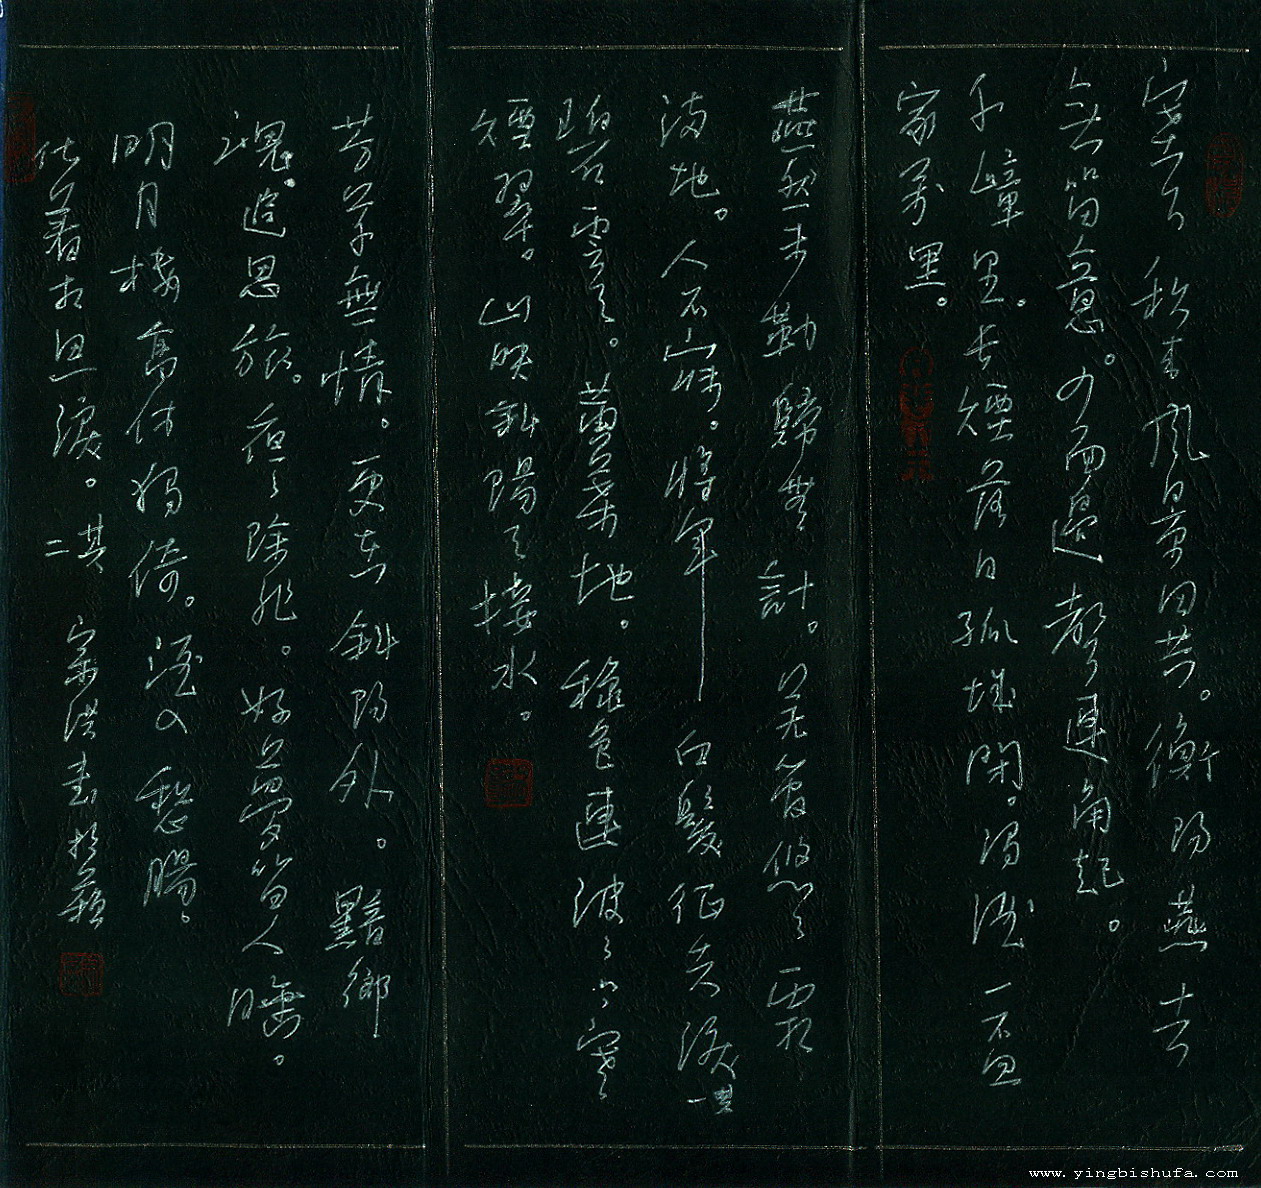 塞下秋来風景異。衡陽燕去
無留意。四面邊聲連角起。
千嶂里。長煙落日孤城閉。濁酒一盃
家萬里。
燕然未勒歸無計。羌管悠々霜
滿地。人不寐。將軍白髮征夫淚 其一
碧雲天。黃葉地。秋色連波々上寒
煙翠。山映斜陽天接水。
芳草無情。更在斜陽外。黯鄉
魂。追思旅。夜々除非。好夢留人睡。
明月樓高休獨倚。酒入愁腸。
化着相思淚。其二 宗洪書於蘇
www.yingbishufa.com